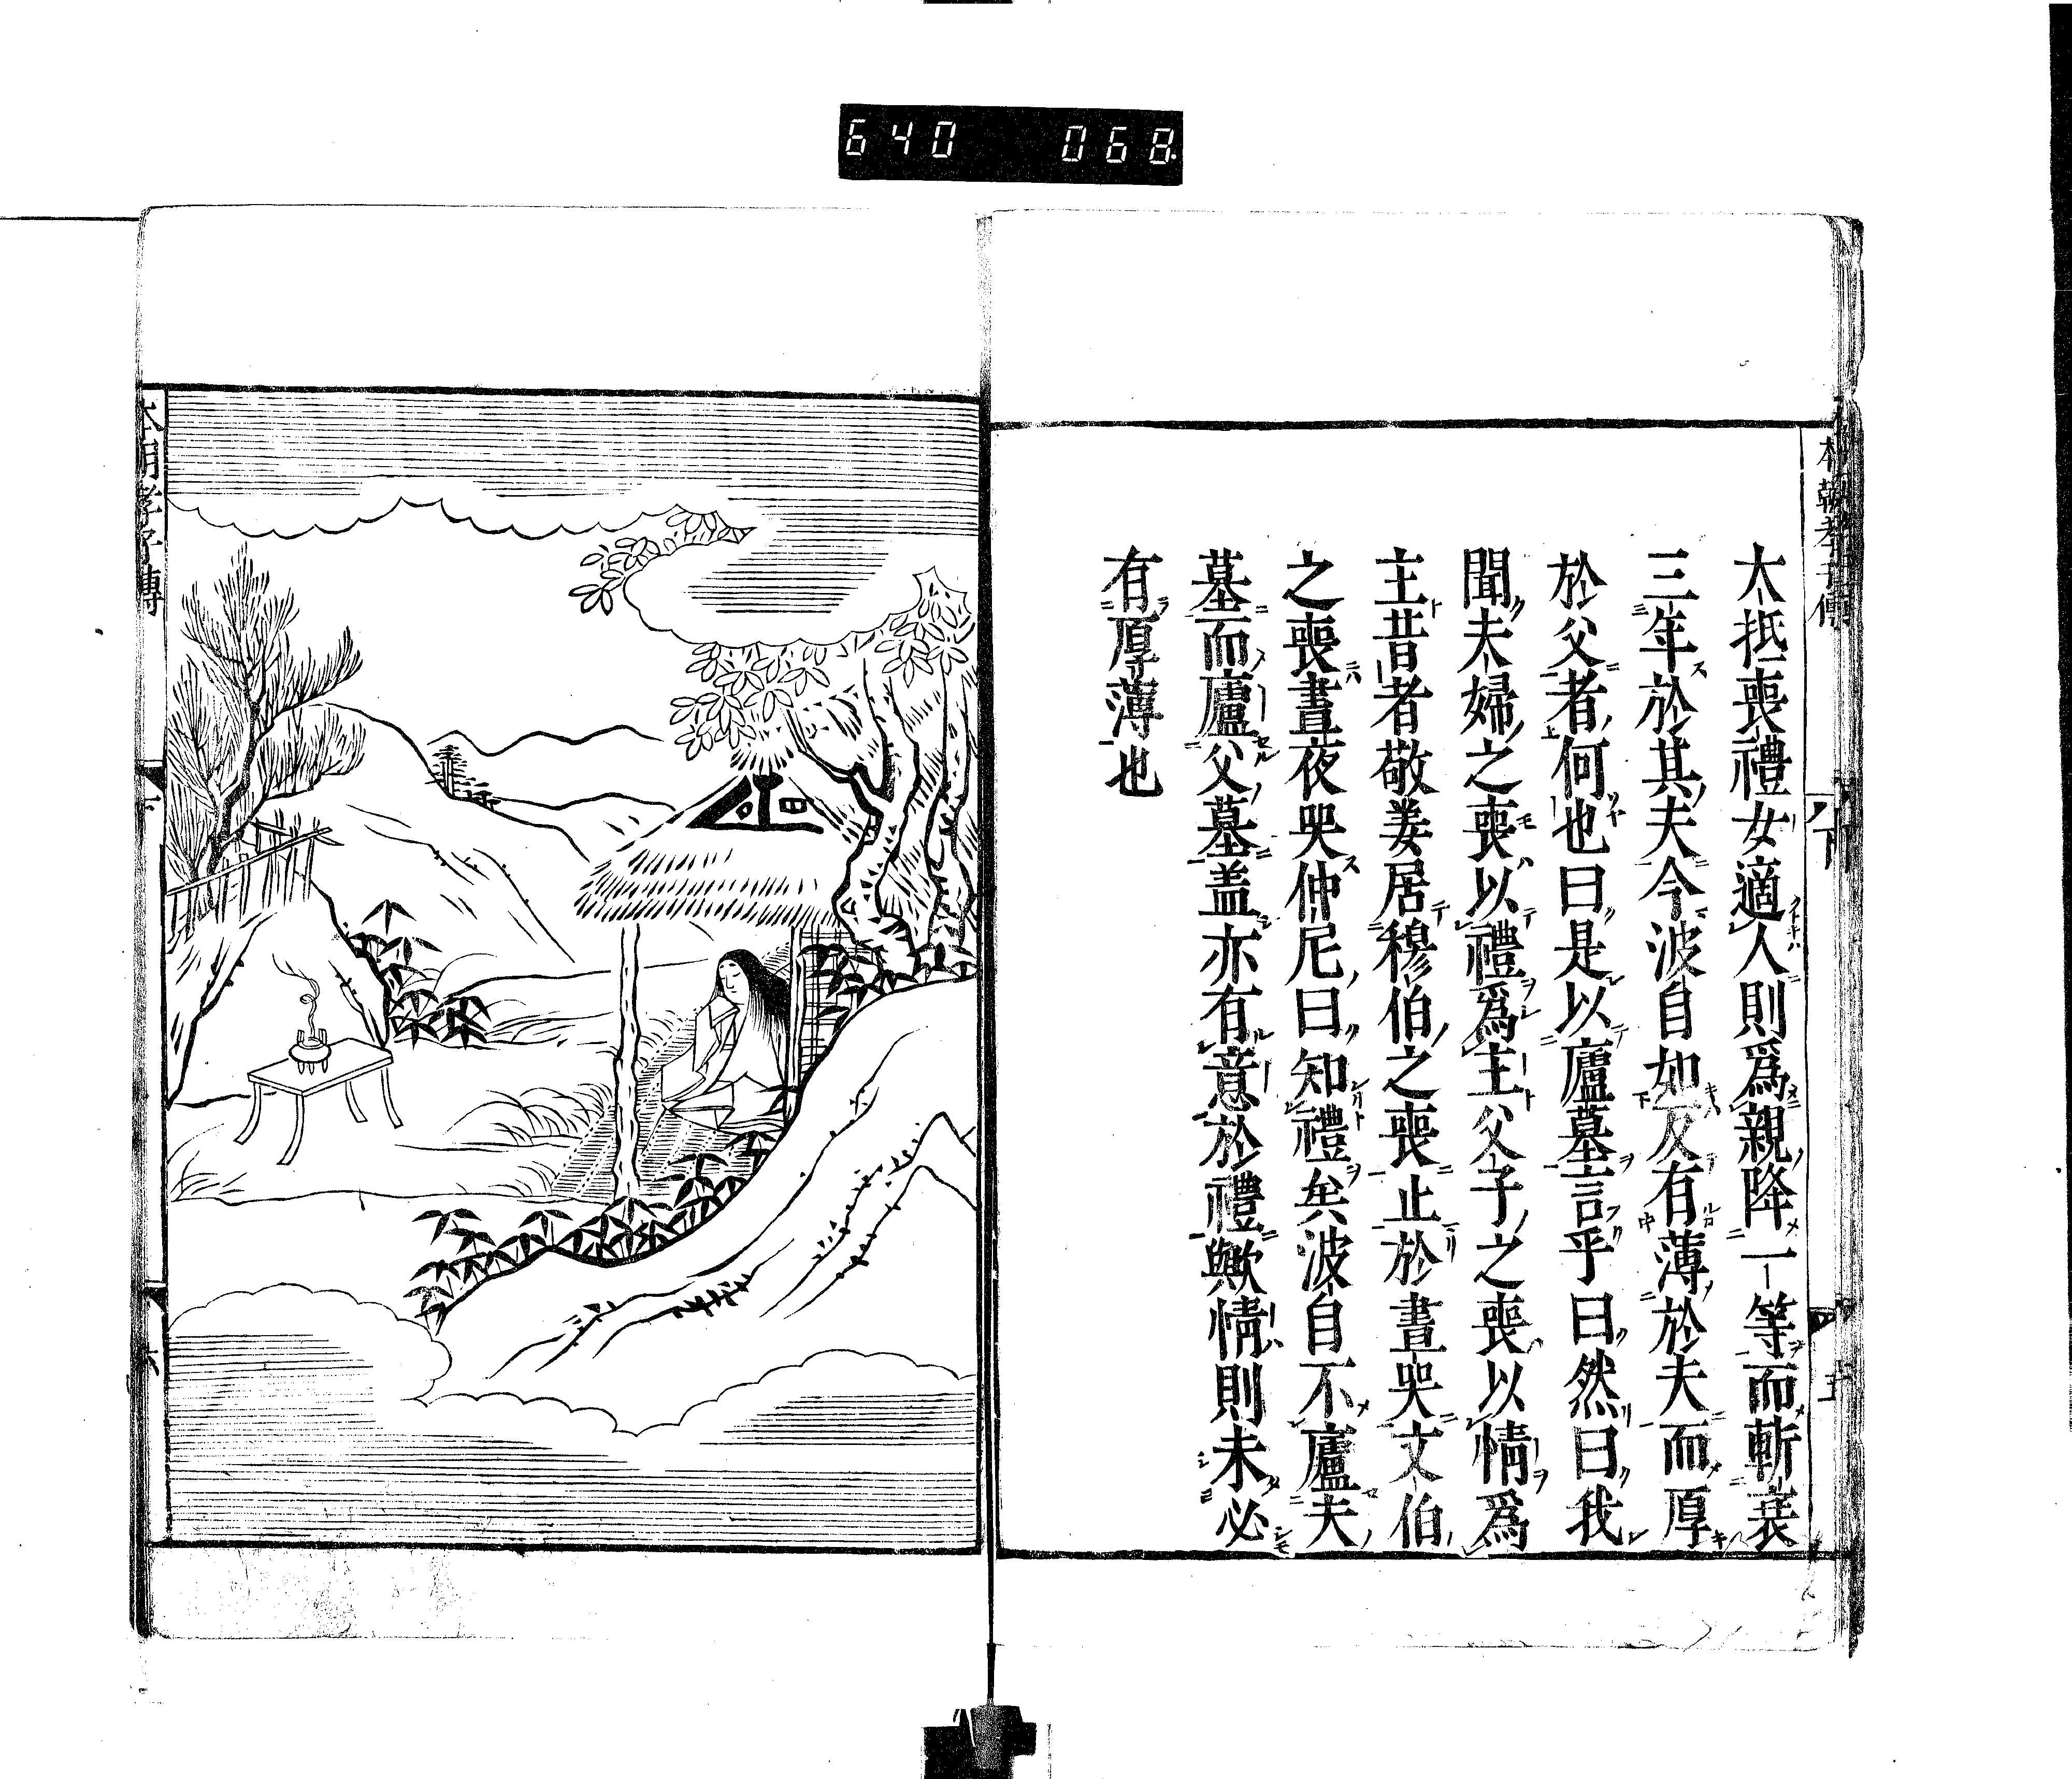 640 068
本朝孝子傳
下
大抵喪禮女適人則爲親降一等而斬衰
三年於其夫今波自如反有薄於夫而厚
於父者何也曰是以廬墓言乎曰然曰我
聞夫婦之喪以禮爲主父子之喪以情爲
主昔者敬姜居穆伯之喪止於晝哭文伯
之喪晝夜哭仲尼曰知禮矣波自不廬夫
墓而廬父墓盖亦有意於禮歟情則未必
有厚薄也
本朝孝子傳